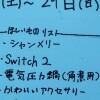 (土)～29日(月)
ほしいものリスト
・シャンメリー
・Switch 2
・電気圧力鍋(角煮用)
・かわいいアクセサリー